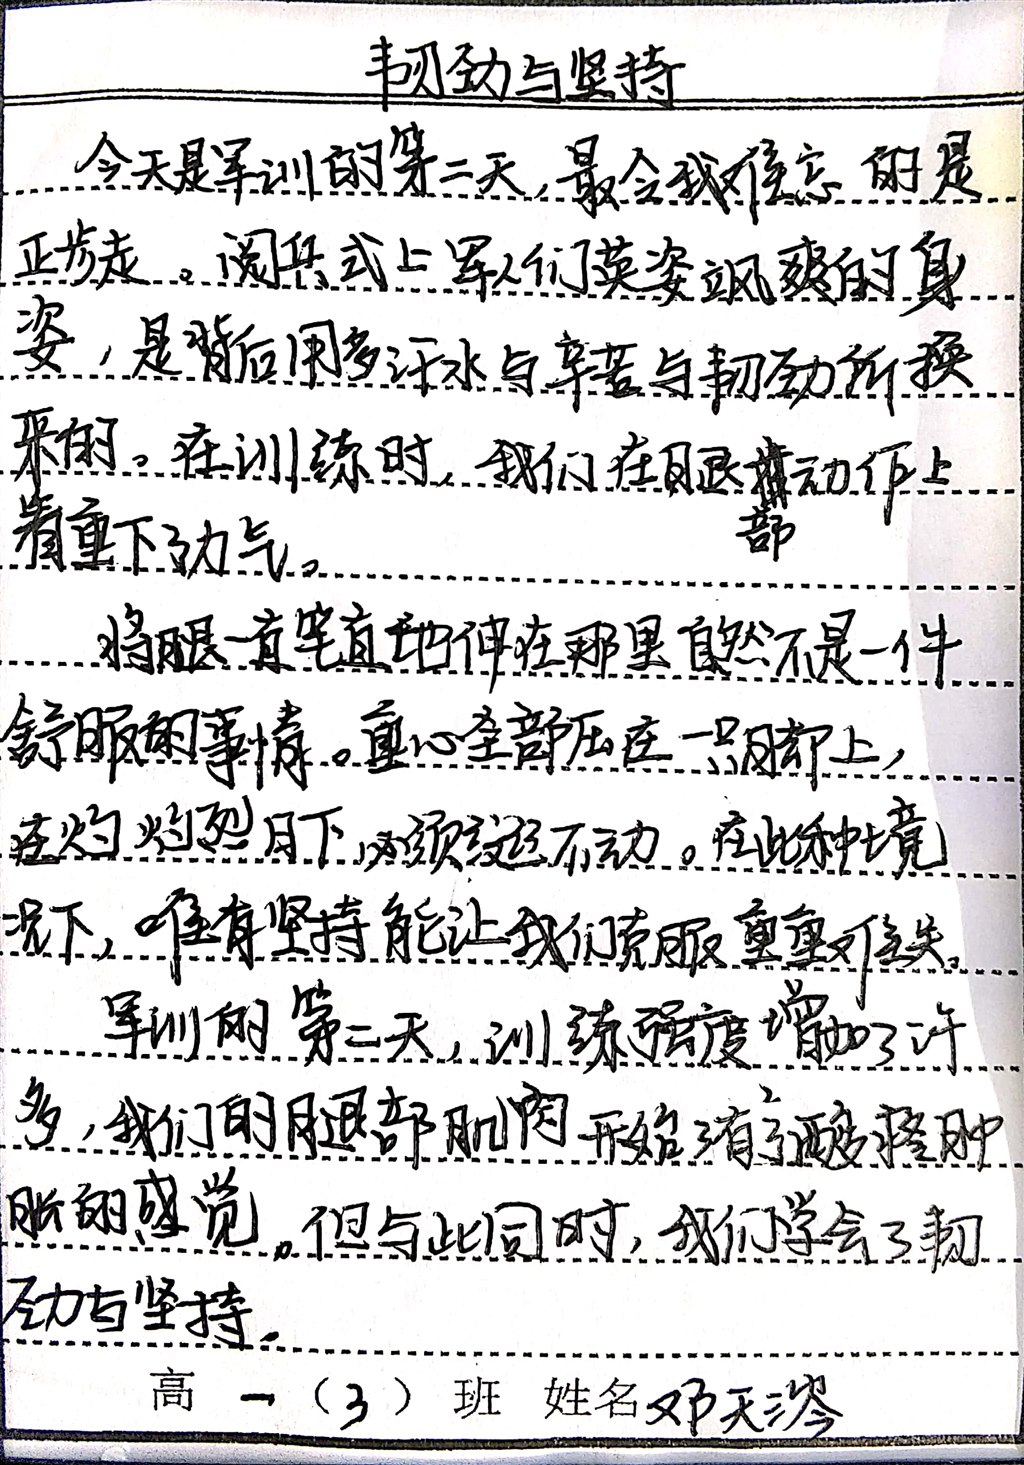 韧劲与坚持
今天是军训的第二天,最令我难忘的是
正步走。阅兵式上军人们英姿飒爽的身
姿,是背后用多汗水与辛苦与韧劲所换
来的。在训练时,我们在腿部动作上
着重下了力气。
将腿一直笔直地伸在那里自然不是一件
舒服的事情。重心全部压在一只脚上,
在灼灼烈日下必须纹丝不动。在此种境
况下,唯有坚持能让我们克服重重难关。
军训的第二天,训练强度增加了许
多,我们的腿部肌肉开始有了酸疼肿
胀的感觉。但与此同时,我们学会了韧
劲与坚持。
高一(3)班 姓名邓天